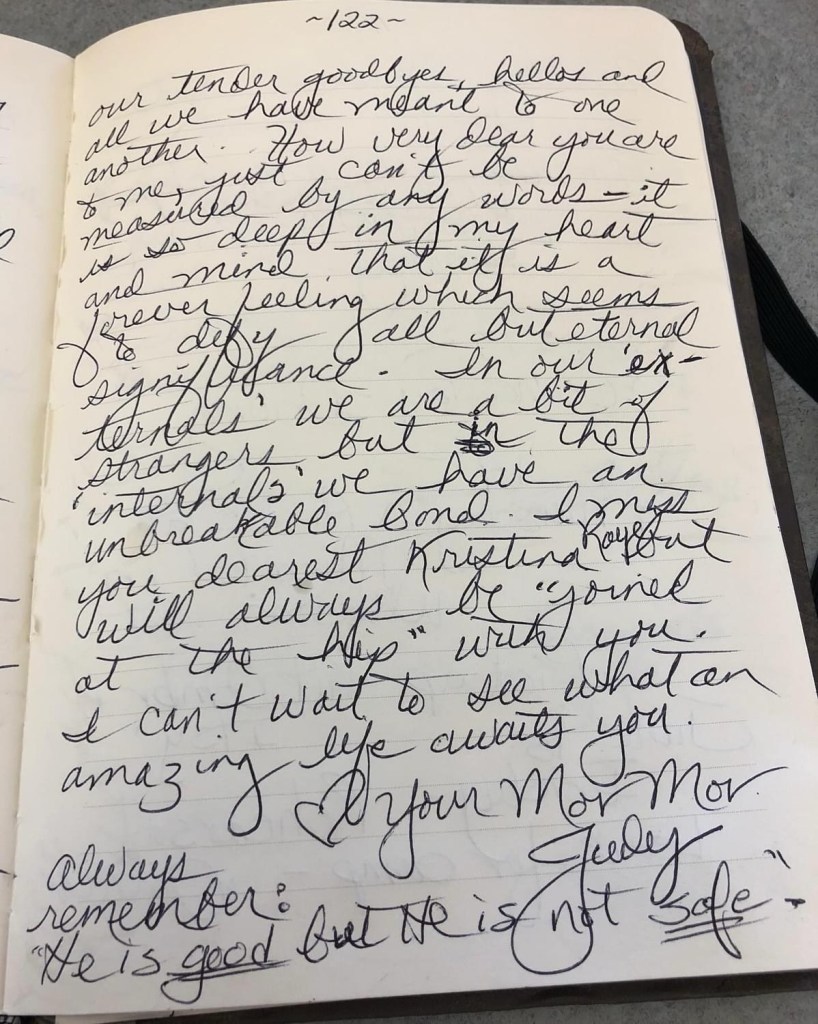 ~122~
our tender goodbyes, hellos and
all we have meant to one
another. How very dear you are
to me, just can't be
measured by any words - it
is so deep in my heart
and mind that it is a
forever feeling which seems
to defy all but eternal
significance. In our 'ex-
ternals' we are a bit of
strangers but in the
'internals' we have an
unbreakable bond. I miss
you dearest Kristina Raye but
will always be "joined
at the hip" with you.
I can't wait to see what an
amazing life awaits you.
♡ Your Mor Mor
Judy
always
remember:
"He is good but He is not safe"-